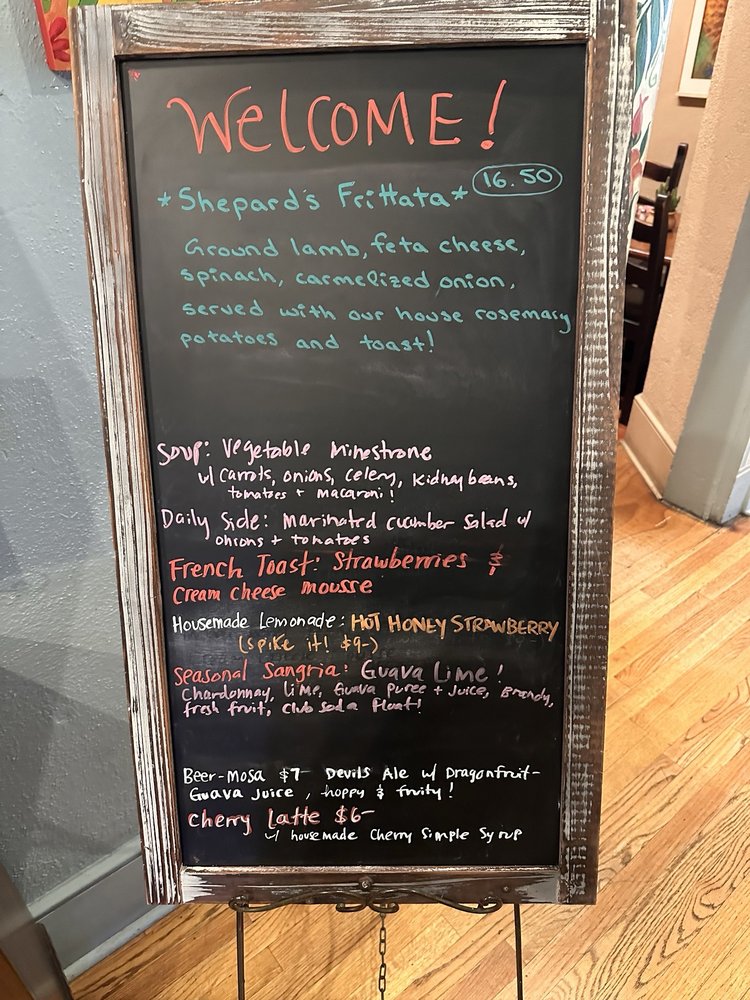 WelCOME!
*Shepard's Frittata* 16.50
Ground lamb, feta cheese,
spinach, carmelized onion,
served with our house rosemary
potatoes and toast!
Soup: Vegetable Minestrone
w/ Carrots, onions, Celery, Kidney beans,
tomatoes + macaroni!
Daily Side: Marinated cucumber Salad w/
onions + tomatoes
French Toast: Strawberries &
Cream cheese mousse
Housemade Lemonade: HOT HONEY STRAWBERRY
(spike it! $9-)
Seasonal Sangria: Guava Lime!
Chardonnay, lime, Guava Puree + Juice, Brandy,
fresh fruit, Club soda Float!
Beer-mosa $7- Devils Ale w/ Dragonfruit-
Guava Juice, hoppy & fruity!
Cherry Latte $6-
w/ housemade Cherry Simple Syrup